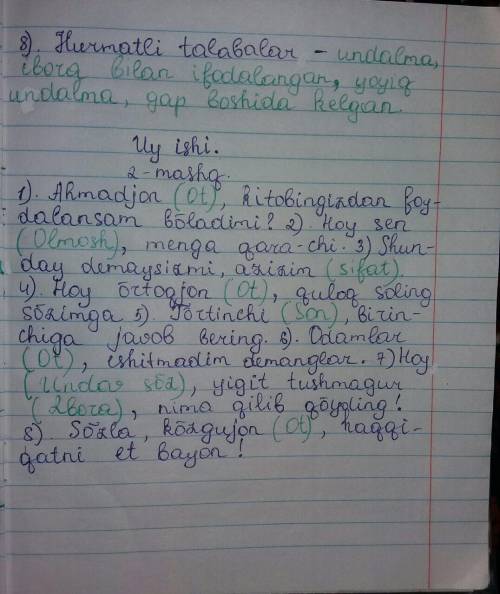 8). Hurmatli talabalar – undalma,
ibora bilan ifodalangan, yoyiq
undalma, gap boshida kelgan.
Uy ishi.
2-mashq.
1). Ahmadjon (Ot), kitobingizdan foy-
dalansam bōladimi? 2). Hoy sen
(Olmosh), menga qara-chi. 3) Shun-
day demaysizmi, azizim (sifat).
4). Hoy ōrtoqjon (Ot), quloq soling
sōzimga 5). Tōrtinchi (Son), birin-
chiga javob bering. 6). Odamlar
(Ot), ishitmadim demanglar. 7) Hoy
(Undov sōz), yigit tushmagur
(Ibora), nima qilib qōyding!
8). Sōzla, kōzgujon (Ot), haqqi-
qatni et bayon!